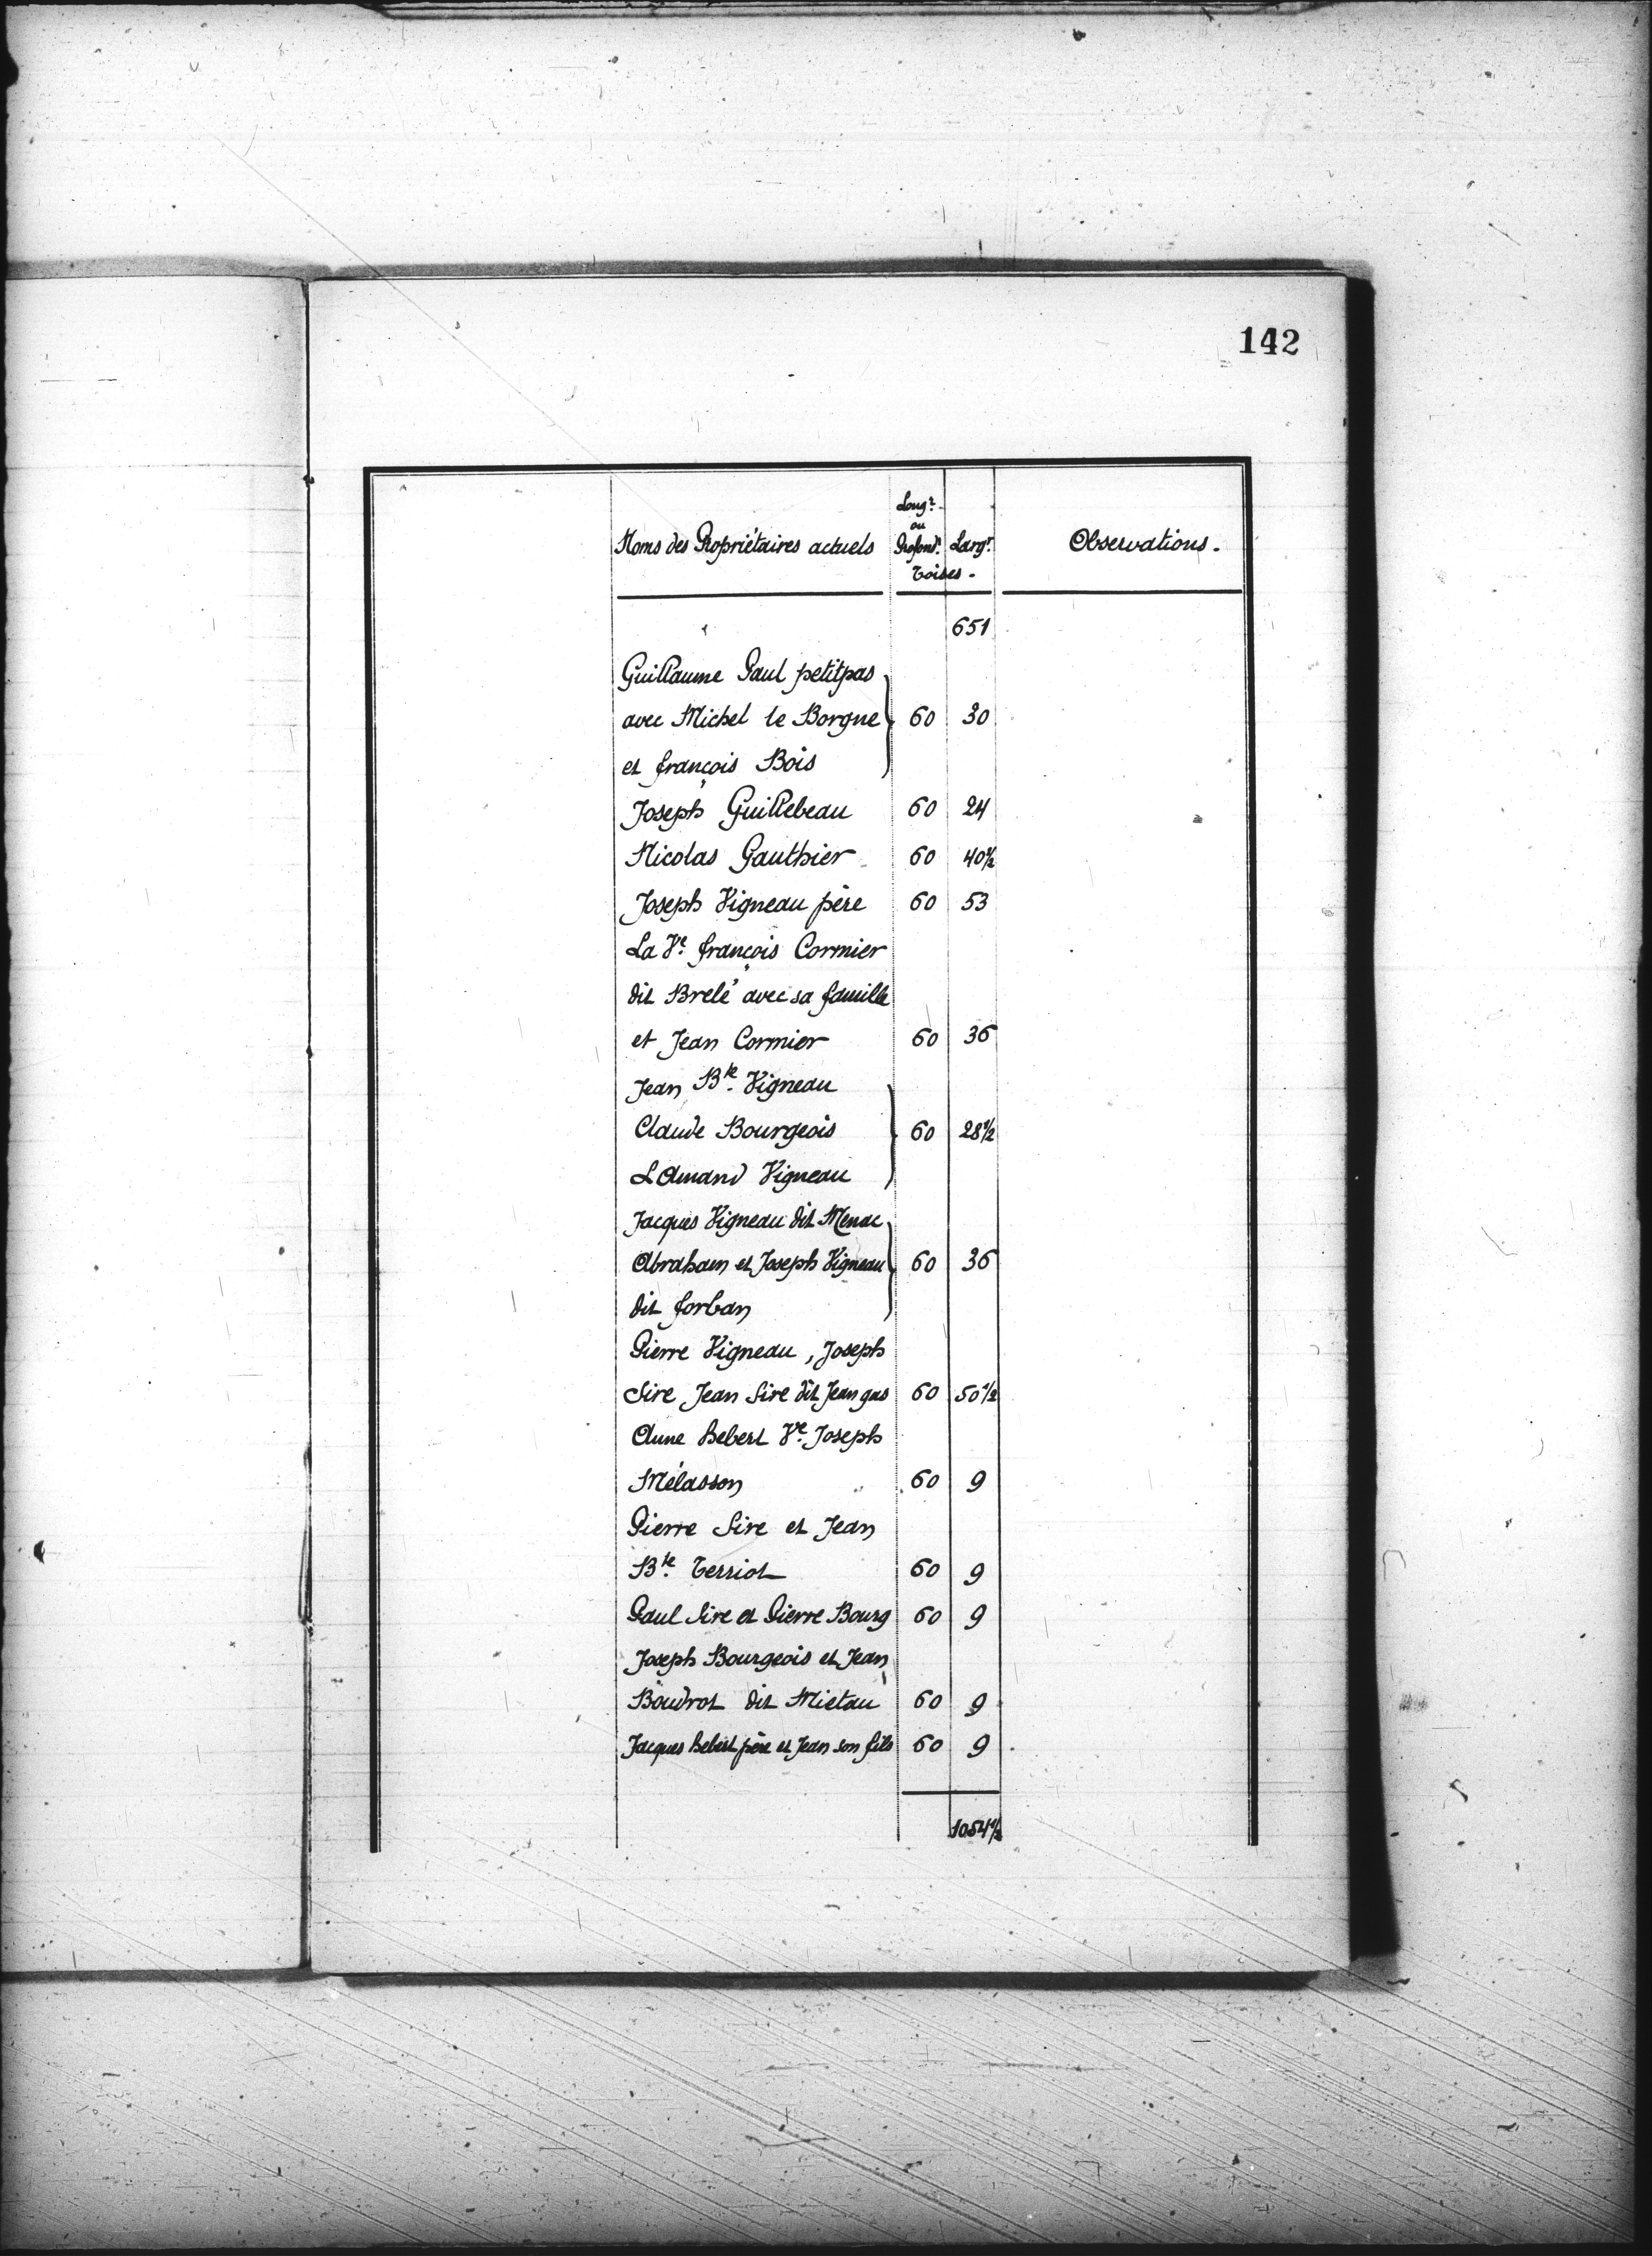 142
Longr.
ou
Noms des Propriétaires actuels Profondr. Largr. Observations.
Toises.
651
Guillaume Paul petitpas
avec Michel le Borgne 60 30
et françois Bois
Joseph Guillebeau 60 24
Nicolas Gauthier 60 40 1/2
Joseph Vigneau père 60 53
La Ve. françois Cormier
dit Brelé avec sa famille
et Jean Cormier 60 36
Jean Bte. Vigneau
Claude Bourgeois 60 28 1/2
L'Amand Vigneau
Jacques Vigneau dit Menac
Abraham et Joseph Vigneau 60 36
dit forban
Pierre Vigneau, Joseph
Sire Jean Sire dit Jean gas 60 50 1/2
Anne hebert Ve. Joseph
Mélasson 60 9
Pierre Sire et Jean
Bte. Terriot 60 9
Paul Sire et Pierre Bourg 60 9
Joseph Bourgeois et Jean
Boudrot dit Mietau 60 9
Jacques hebert père et Jean son fils 60 9
1054 1/2